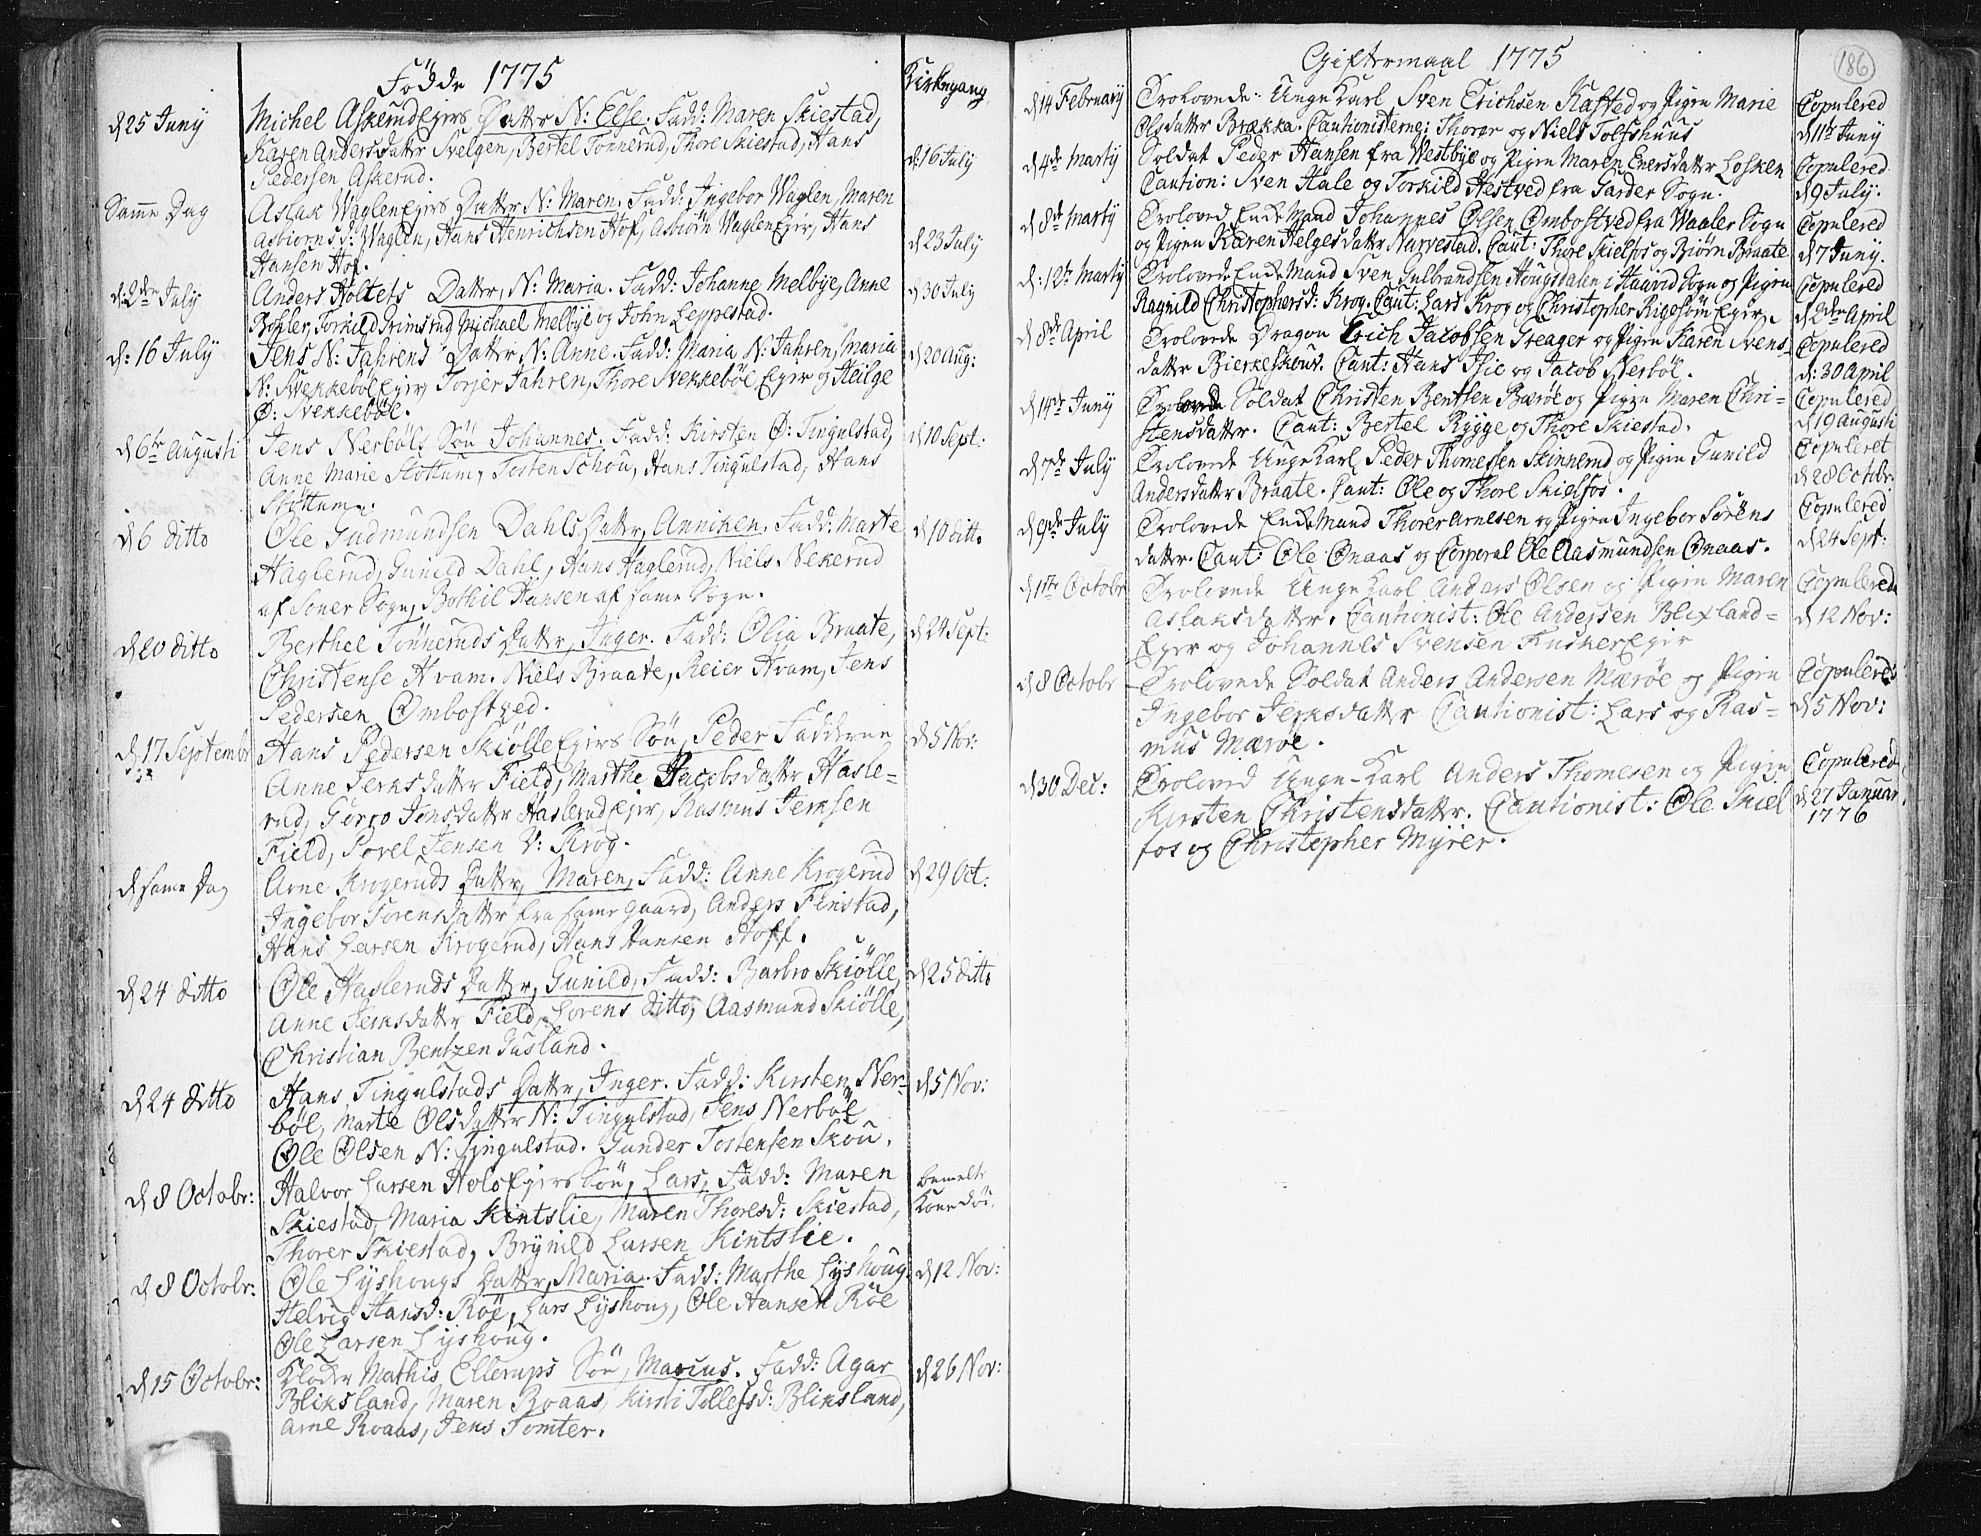 Födde 1775
Kirkegang
d 25 Juny
Michel Askerud Eiers Datter N: Else. Fadd: Maren Skiestad,
Karen Anders datter Svelgen, Bertel Tönnerud, Thore Skiestad, Hans
Pedersen Askerud.
d 16 July
Samme Dag
Aslak Waglen Eiers Datter N: Maren. Fadd: Ingebor Waglen, Maren
Asbiörns d: Waglen, Hans Henrichsen Hof, Asbiörn Waglen Eier, Hans
Hansen Hof.
d 23 July
d: 2den July
Anders Holtets Datter, N: Maria. Fadd: Johanne Melbÿe, Anne
Bohler, Torkild Grimsrud, Michael Melbÿe og John Leppestad.
d 30 July
d: 16 July
Jens N: Jahrens Datter N: Anne. Fadd: Maria N: Jahren, Maria
N: Svekkeböl Eier, Torjer Jahren, Thore Svekkeböl Eier og Helge
Ö: Svekkeböl.
d 20 Aug:
d 6te Augusti
Jens Nerböls Sön Johannes. Fadd: Kirsten Ö: Tingulstad,
Anne Marie Slottum, Tosten Schou, Hans Tingulstad, Hans
Slottum.
d 10 Sept:
d 6 ditto
Ole Gudmundsen Dahls Datter, Anniken. Fadd: Marte
Haglerud, Gunild Dahl, Hans Haglerud, Niels Nekerud
af Soner Sogn, Bothil Hansen af samme Sogn.
d 10 ditto
d 20 ditto
Berthel Tönneruds Datter, Inger. Fadd: Olia Braate,
Christense Hvam. Niels Braate, Reier Hvam, Jens
Pedersen Ombostved.
d 24 Sept:
d 17 Septembr
Hans Pedersen Skiölle Eiers Sön, Peder Fadderne
Anne Jerksdatter Field, Marthe Jacobsdatter Hasle=
rud, Gorro Jonsdatter Haslerud Eier, Rasmus Jerksen
Field, Povel Jensen V: Krog.
d 5 Nov:
d same Dag
Arne Krogeruds Datter, Maren, Fadd: Anne Krogerud
Ingebor Sörensdatter fra same gaard, Anders Finstad,
Hans Larsen Krogerud, Hans Hansen Hoff.
d 29 Oct:
d 24 ditto
Ole Hasleruds Datter, Gunild, Fadd: Barbro Skiölle,
Anne Jerksdatter Field, Lorens ditto, Aasmund Skiölle,
Christian Bentzen Gusland.
d 25 ditto
d 24 ditto
Hans Tingulstads Datter, Inger. Fadd: Kirsten Ner=
böl, Marte Olsdatter N: Tingulstad, Jens Nerböl
Ole Olsen N: Tingulstad. Gunder Tostensen Skou.
d 5 Nov:
d 8 Octobr:
Halvor Larsen Hols Eiers Sön, Lars, Fadd: Maren
Skiestad, Maria Kintslie, Maren Thoresd: Skiestad,
Thorer Skiestad, Brÿnild Larsen Kintslie.
bemelte
Kone död.
d 8 Octobr:
Ole Lÿshougs Datter, Maria. Fadd: Marthe Lÿshoug
Helvig Hansd: Röe, Lars Lÿshoug, Ole Hansen Röe
Ole Larsen Lÿshoug.
d 12 Nov:
d 15 Octobr:
Kloder Mathis Ellerups Sön, Marcus. Fadd: Agar
Bliksland, Maren Roaas, Kirsti Tollefsd: Bliksland,
Arne Roaas, Jens Tomter.
d 26 Nov:
Giftermaal 1775
186
d 14 February
Trolovede: Unge Karl Sven Erichsen Kafted og Pigen Marie
Olsdatter Brække. Cautionisterne: Thorer og Niels Tolfshuus
Copulered
d 11te Juny
d 4de Marty
Soldat Peder Hansen fra Westbÿe og Pigen Maren Enersdatter Losken
Caution: Sven Hale og Torkild Hestved fra Garder Sogn.
Copulered
d 9 July.
d 8de Marty
Trolovede Enke Mand Johannes Olsen Ombostved fra Waaler Sogn
og Pigen Karen Helgesdatter Narvestad. Caut: Thore Skielfos og Biörn Braate
Copulered
d 7 Juny.
d: 12te Marty
Trolovede Enke Mand Sven Gulbrandsen Hougsdalen i Haavid Sogn og Pigen
Ragnild Christophersd: Krog. Caut: Lars Krog og Christopher Rigesöm Eier.
Copulered
d 2den April
d 8de April
Trolovede Dragon Erich Jacobsen Greager og Pigen Karen Svens
datter Bierkeskout. Caut: Hans Thie og Jacob Nerböl.
Copulered
d: 30 April
d 14de Juny
Trolovede Soldat Christen Bentsen Bæröe og Pigen Maren Chri=
stensdatter. Caut: Bertel Rygge og Thore Skiestad.
Copulered
d 19 Augusti
d 7de July
Trolovede Unge Karl Peder Thomesen Skinnerud og Pigen Gunild
Andersdatter Braate. Caut: Ole og Thore Skielfos.
Copuleret
d 28 Octobr
d 9de July
Trolovede Enke Mand Thorer Arnesen og Pigen Ingebor Sörens
datter. Caut: Ole Onaas og Corporal Ole Aasmundsen Onaas.
Copulered
d 24 Sept:
d 1ste Octobr
Trolovede Unge Karl Anders Olsen og Pigen Maren
Aslaksdatter. Cautionist: Ole Andersen Blixland=
Eier og Johannes Svensen Kusker Eier
Copulered
d 12 Nov:
d 8 Octobr
Trolovede Soldat Anders Andersen Mæröe og Pigen
Ingebor Jerksdatter Cautionist: Lars og Ras=
mus Mæröe.
Copulered
d 5 Nov:
d 30 Dec:
Trolovede Unge Karl Anders Thomesen og Pigen
Kirsten Christensdatter. Cautionist: Ole Skiel
fos og Christopher Mÿrer.
Copulered
d 27 Januar
1776